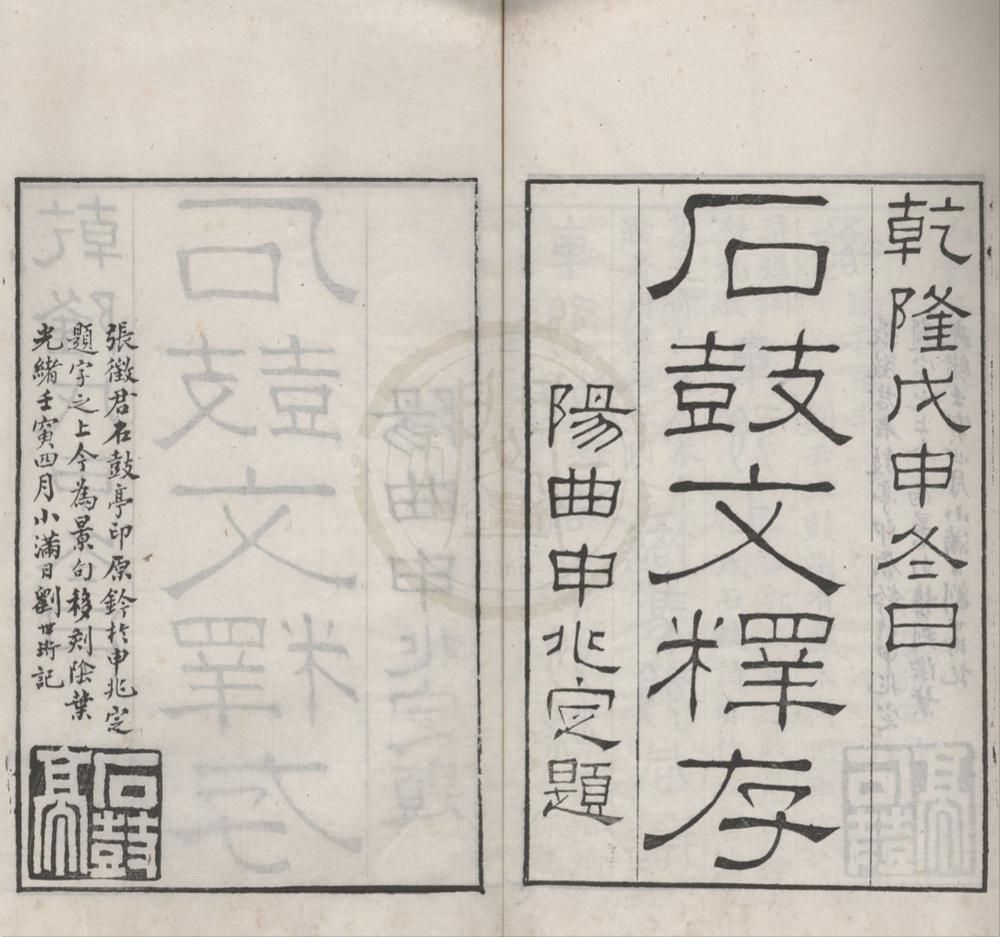 乾隆戊申冬日
石鼓文釋存
陽曲申兆定題
張徵君石鼓亭印原鈐於申兆定
題字之上今為景句移刻陰葉
光緒壬寅四月小滿日劉世珩記
石鼓
亭